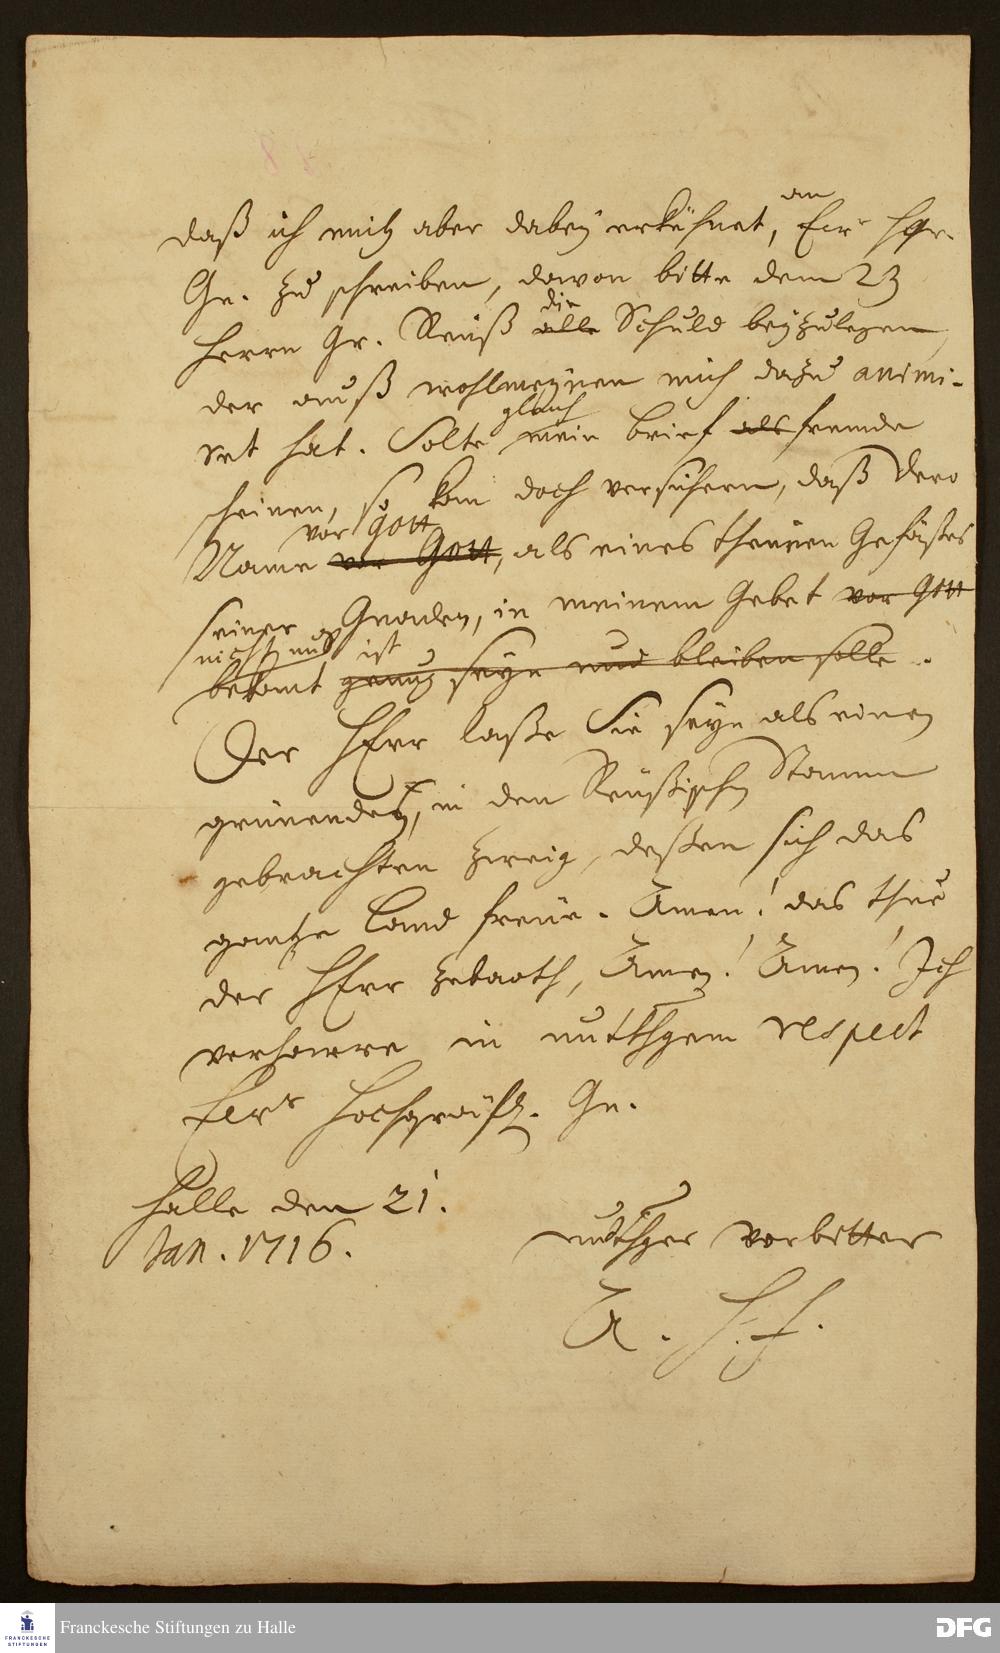 an
daß ich mich aber dabey erkühnet, Ew. Hgr.
Gn. zu schreiben, davon bitte dem 23
Herrn Gr. Reuß alle die Schuld beyzulegen
der auß wohlmeynen mich dazu animi-
ret hat. Solte gleich mein brief als fremde
scheinen, so kan doch versichern, daß Dero
vor Gott
Name vor Gott, als eines theuren Gefäßes
seiner Gnaden, in meinem Gebet vor Gott
nicht nur ist
bekant genug seyn und bleiben solle.
Der HErr laße Sie seyn als einen
grünenden, in den Reußischen Stamm
gebrachten Zweig, deßen sich das
gantze Land freue. Amen! das thue
der HErr Zebaoth, Amen! Amen! Ich
verharre in unterthgem respect
Ewr Hochgräfl. Gn.
Halle den 21.
Jan. 1716.
unterthger Vorbitter
A. H. F.
Franckesche Stiftungen zu Halle
FRANCKESCHE
STIFTUNGEN
DFG